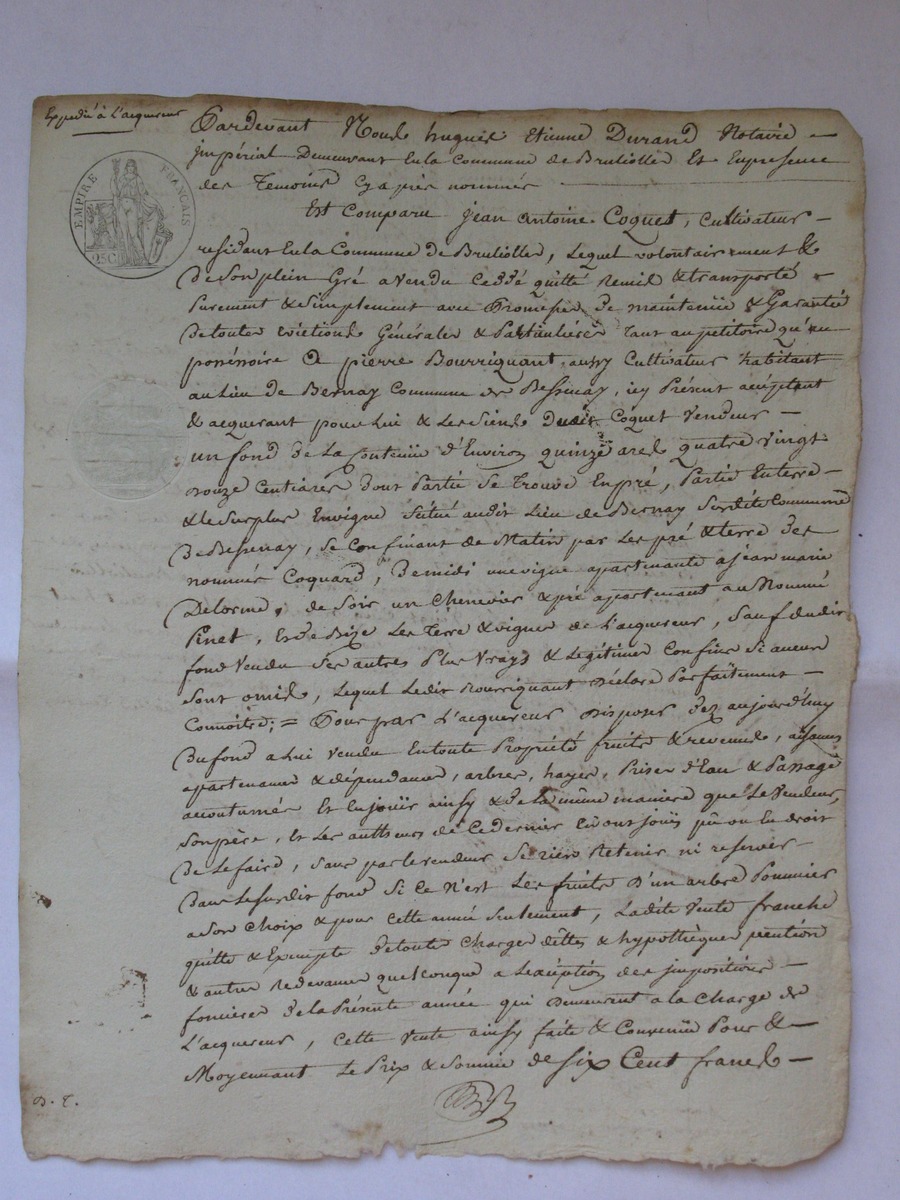 Expedié à l'acquereur
EMPIRE FRANÇAIS
25C
Pardevant Nous hugues Etienne Durand Notaire
jmpérial Demeurant En la Commune de Bruliolles Et En presence
des Temoins Cy après nommés
Est Comparu jean Antoine Coquet, Cultivateur
residant En la Commune de Bruliolles, Lequel volontairement &
De Son plein Gré a Vendu Ceddé quitté Remis & transporté
Purement & Simplement avec Promesse De maintenüe & Garantie
De toutes Evictions Générales & Particulières tant au petitoire qu'au
possessoire a pierre Bourrignant aussy Cultivateur habitant
au Lieu de Bernay Commune de Bessenay, icy Présent acceptant
& acquerant pour Lui & Les Siens dudit Coquet Vendeur
un fond De La Contenüe d'Environ quinze ares quatre vingt
onze Centiares Dont Partie Se Trouve En pré, Partie En terre
& le Surplus En vigne Situé audit Lieu de Bernay Susdite Commune
De Bessenay, Se Confinant de Matin par Les pré & terre des
nommés Coquard, De midi une vigne apartenante a jean marie
Delorme, de Soir un Chenevier & pré apartenant au Nommé
Pinet, Et de Bize Les Terre & vigne de L'acquereur, Sauf dudit
fond Vendu Ses autres Plus Vrays & Legitimes Confins Si aucun
Sont omis, Lequel Ledit Bourrignant Déclare Parfaitement
Connoitre; = Pour par L'acquereur Disposer Dez aujourd'huy
Du fond a Lui Vendu En toute Propriété fruits & revenus, aisances
apartenances & dépendances, arbres, hayes, Prises d'Eau & Passage
acoutumés Et En jouïr ainsy & De La même maniere que Le Vendeur,
Son père, Et Les autheurs de Ce dernier En ont jouïs pû ou En droit
De Le faire, Sans par le vendeur Se rien Retenir ni reserver
Dans Le Susdit fond Si Ce N'est Les fruits D'un arbre Pommier
a Son Choix & pour Cette année Seulement, Ladite Vente franche
quitte & Exempte De toutes Charges dettes & hypothèques pention
& autres Redevance quelconque a L'exception des jmpositions
foncieres De la Présente année qui Demeurent a la Charge de
L'acquereur, Cette Vente ainsy faite & Convenüe Pour &
Moyennant Le Prix & Somme de Six Cent francs
D. T.